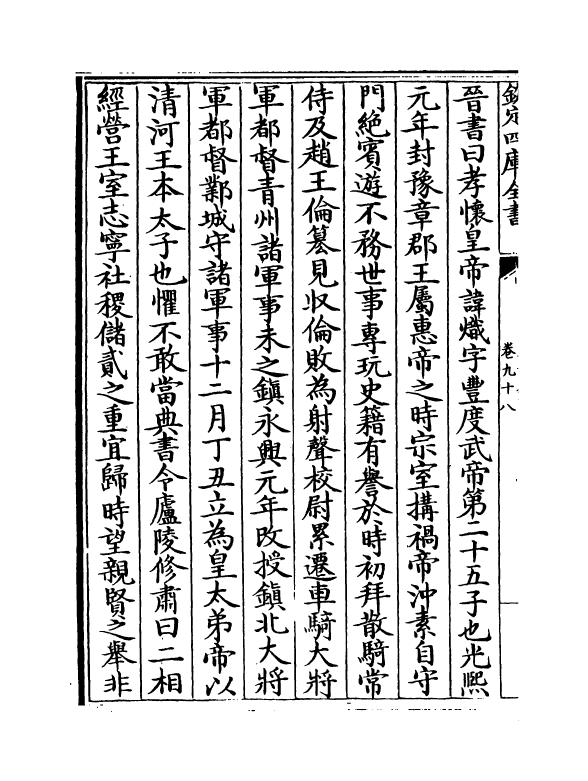 欽定四庫全書
卷九十八
晉書曰孝懷皇帝諱熾字豐度武帝第二十五子也光熙
元年封豫章郡王屬惠帝之時宗室搆禍帝沖素自守
門絶賓遊不務世事專玩史籍有譽於時初拜散騎常
侍及趙王倫簒見収倫敗為射聲校尉累遷車騎大將
軍都督青州諸軍事未之鎮永興元年改授鎮北大將
軍都督鄴城守諸軍事十二月丁丑立為皇太弟帝以
清河王本太子也懼不敢當典書令廬陵修肅曰二相
經營王室志寧社稷儲貳之重宜歸時望親賢之舉非